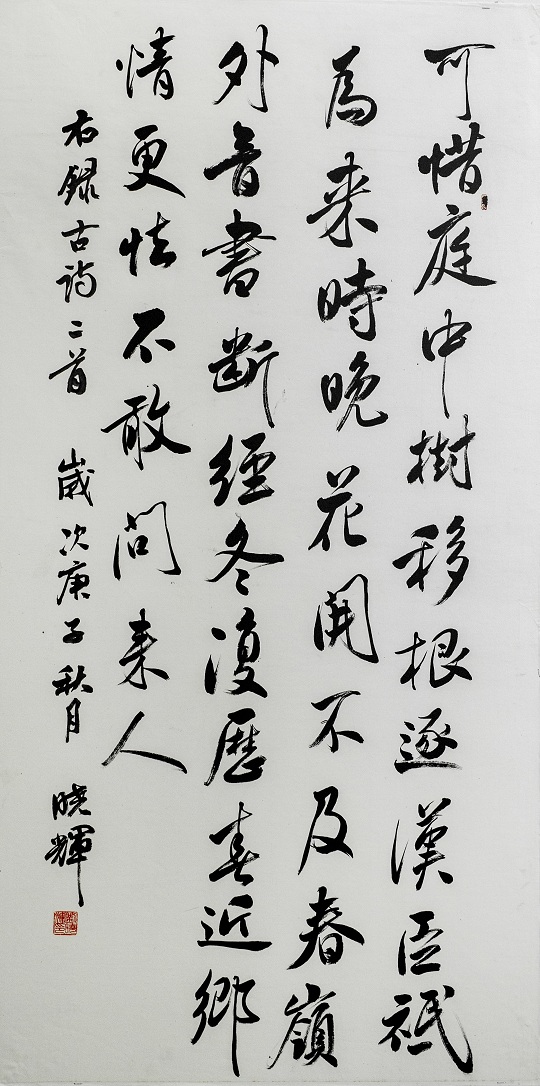 可惜庭中樹移根逐漢臣祇
為來時晚花開不及春嶺
外音書斷經冬復歷春近鄉
情更怯不敢問來人
右録古詩二首 歲次庚子秋月 曉輝